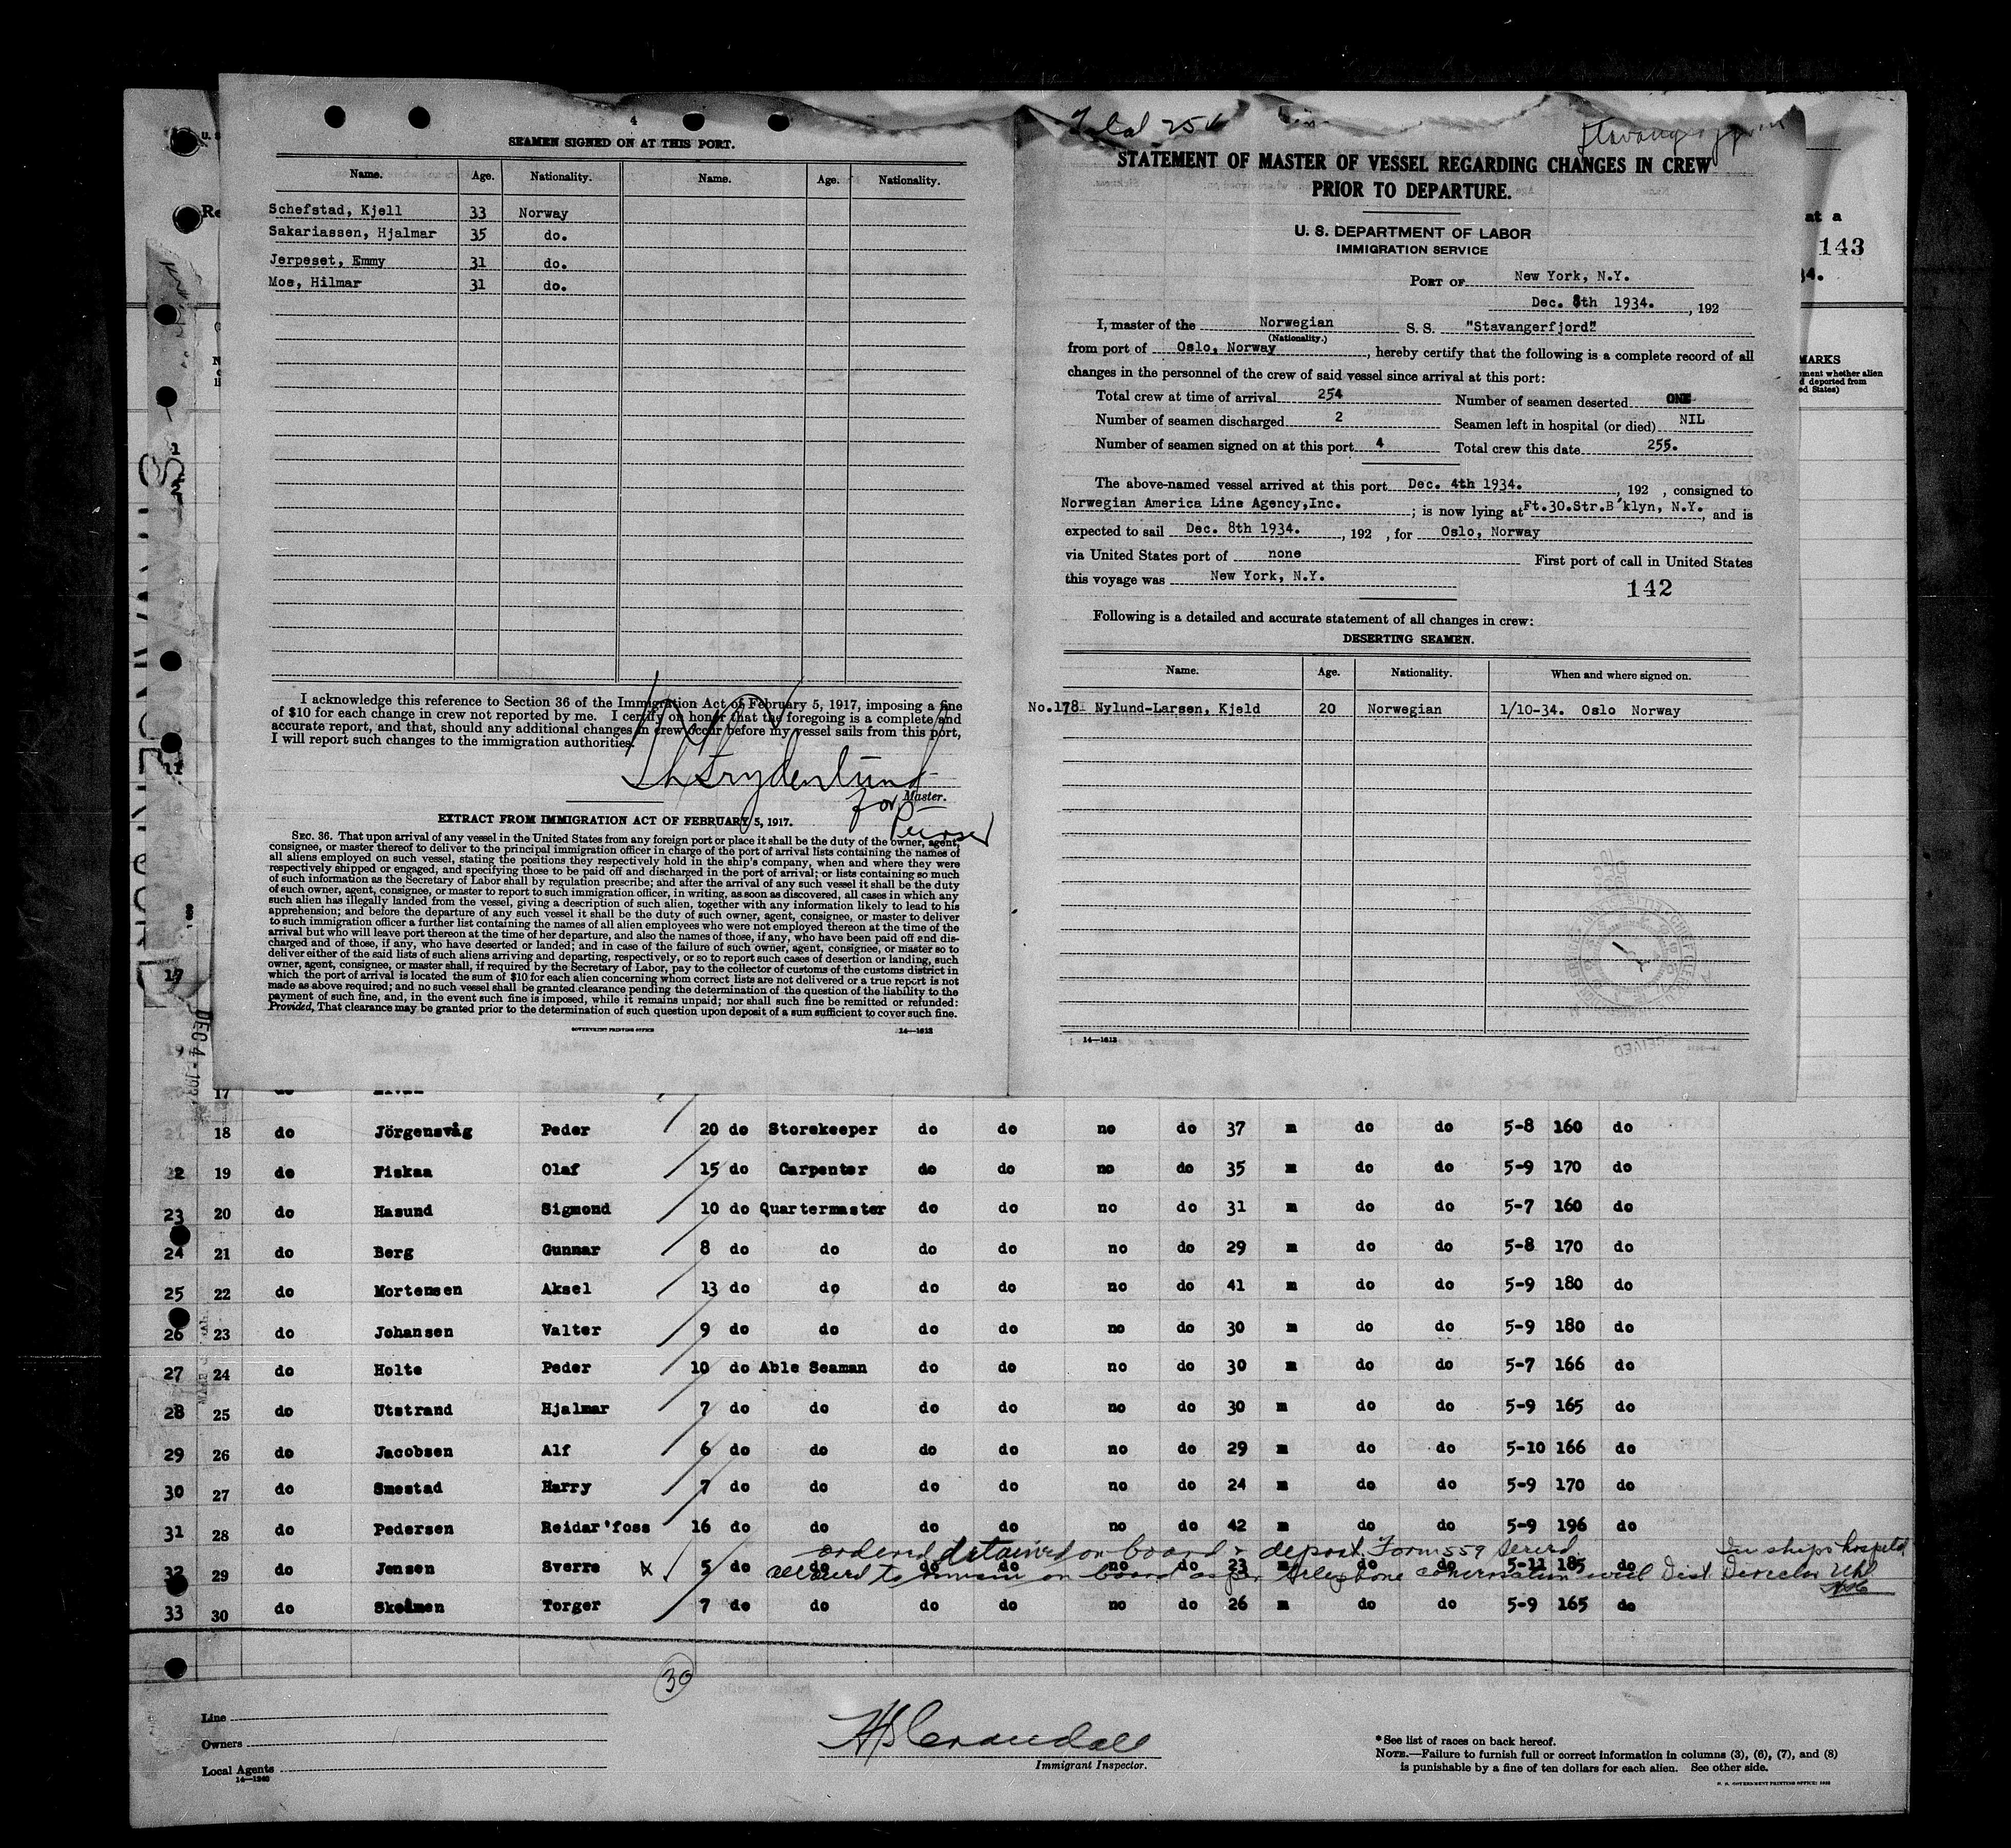 4
SEAMEN SIGNED ON AT THIS PORT.
Name. Age. Nationality. Name. Age. Nationality.
Schefstad, Kjell 33 Norway
Sakariassen, Hjalmar 35 do.
Jerpeset, Emmy 31 do.
Moe, Hilmar 31 do.
I acknowledge this reference to Section 36 of the Immigration Act of February 5, 1917, imposing a fine
of $10 for each change in crew not reported by me. I certify on honor that the foregoing is a complete and
accurate report, and that, should any additional changes in crew occur before my vessel sails from this port,
I will report such changes to the immigration authorities.
for Master.
Purser
EXTRACT FROM IMMIGRATION ACT OF FEBRUARY 5, 1917.
SEC. 36. That upon arrival of any vessel in the United States from any foreign port or place it shall be the duty of the owner, agent,
consignee, or master thereof to deliver to the principal immigration officer in charge of the port of arrival lists containing the names of
all aliens employed on such vessel, stating the positions they respectively hold in the ship's company, when and where they were
respectively shipped or engaged, and specifying those to be paid off and discharged in the port of arrival; or lists containing so much
of such information as the Secretary of Labor shall by regulation prescribe; and after the arrival of any such vessel it shall be the duty
of such owner, agent, consignee, or master to report to such immigration officer, in writing, as soon as discovered, all cases in which any
such alien has illegally landed from the vessel, giving a description of such alien, together with any information likely to lead to his
apprehension; and before the departure of any such vessel it shall be the duty of such owner, agent, consignee, or master to deliver
to such immigration officer a further list containing the names of all alien employees who were not employed thereon at the time of the
arrival but who will leave port thereon at the time of her departure, and also the names of those, if any, who have been paid off and dis-
charged and of those, if any, who have deserted or landed; and in case of the failure of such owner, agent, consignee, or master so to
deliver either of the said lists of such aliens arriving and departing, respectively, or so to report such cases of desertion or landing, such
owner, agent, consignee, or master shall, if required by the Secretary of Labor, pay to the collector of customs of the customs district in
which the port of arrival is located the sum of $10 for each alien concerning whom correct lists are not delivered or a true report is not
made as above required; and no such vessel shall be granted clearance pending the determination of the question of the liability to the
payment of such fine, and, in the event such fine is imposed, while it remains unpaid; nor shall such fine be remitted or refunded:
Provided, That clearance may be granted prior to the determination of such question upon deposit of a sum sufficient to cover such fine.
GOVERNMENT PRINTING OFFICE 14—1612
Total 254
Stavangerfjord
STATEMENT OF MASTER OF VESSEL REGARDING CHANGES IN CREW
PRIOR TO DEPARTURE.
U. S. DEPARTMENT OF LABOR
IMMIGRATION SERVICE
PORT OF New York, N.Y.
Dec. 8th 1934. , 192
I, master of the Norwegian S. S. "Stavangerfjord"
(Nationality.)
from port of Oslo, Norway , hereby certify that the following is a complete record of all
changes in the personnel of the crew of said vessel since arrival at this port:
Total crew at time of arrival 254 Number of seamen deserted ONE
Number of seamen discharged 2 Seamen left in hospital (or died) NIL
Number of seamen signed on at this port 4 Total crew this date 255.
The above-named vessel arrived at this port Dec. 4th 1934. , 192 , consigned to
Norwegian America Line Agency,Inc. ; is now lying at Ft.30.Str.B'klyn, N.Y. , and is
expected to sail Dec. 8th 1934. , 192 , for Oslo, Norway
via United States port of none First port of call in United States
this voyage was New York, N.Y.
142
Following is a detailed and accurate statement of all changes in crew:
DESERTING SEAMEN.
Name. Age. Nationality. When and where signed on.
No.178 Nylund-Larsen, Kjeld 20 Norwegian 1/10-34. Oslo Norway
14—1612
at a
143
34.
MARKS
17 do
21 18 do Jörgensvåg Peder 20 do Storekeeper do do no do 37 m do do 5-8 160 do
22 19 do Fiskaa Olaf 15 do Carpenter do do no do 35 m do do 5-9 170 do
23 20 do Hasund Sigmond 10 do Quartermaster do do no do 31 m do do 5-7 160 do
24 21 do Berg Gunnar 8 do do do do no do 29 m do do 5-8 170 do
25 22 do Mortensen Aksel 13 do do do do no do 41 m do do 5-9 180 do
26 23 do Johansen Valter 9 do do do do no do 30 m do do 5-9 180 do
27 24 do Holte Peder 10 do Able Seaman do do no do 30 m do do 5-7 166 do
28 25 do Utstrand Hjalmar 7 do do do do no do 30 m do do 5-9 165 do
29 26 do Jacobsen Alf 6 do do do do no do 29 m do do 5-10 166 do
30 27 do Smestad Harry 7 do do do do no do 24 m do do 5-9 170 do
31 28 do Pedersen Reidar'foss 16 do do do do no do 42 m do do 5-9 196 do
ordered detained on board & deport. Form 559 served In ships hospital
32 29 do Jensen Sverre x 5 do do do do no do 23 m do do 5-11 185 do
allowed to remain on board as per telephone conversation with Dist Director Uhl
33 30 do Skolmen Torger 7 do do do do no do 26 m do do 5-9 165 do
30
Line
Owners
Local Agents
14—1240
HS Crandall
Immigrant Inspector.
*See list of races on back hereof.
NOTE.—Failure to furnish full or correct information in columns (3), (6), (7), and (8)
is punishable by a fine of ten dollars for each alien. See other side.